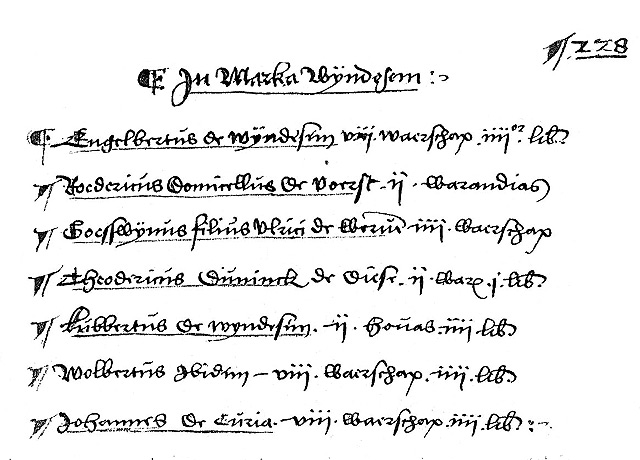 228
In Marka Wyndesem
Engelbertus de wyndesim viii waerschap iiiior lib
Roedericus Domicellus de voerst ii warandias
Goesswynus filius Ulrici de iiii waerschap
Theodericus Duninck de Diese ii warx i lib
Lubbertus de wyndesim ii houas iiii lib
Wolbertus Ibidem viii waerschap iiii lib
Johannes de Curia viii waerschap iiii lib